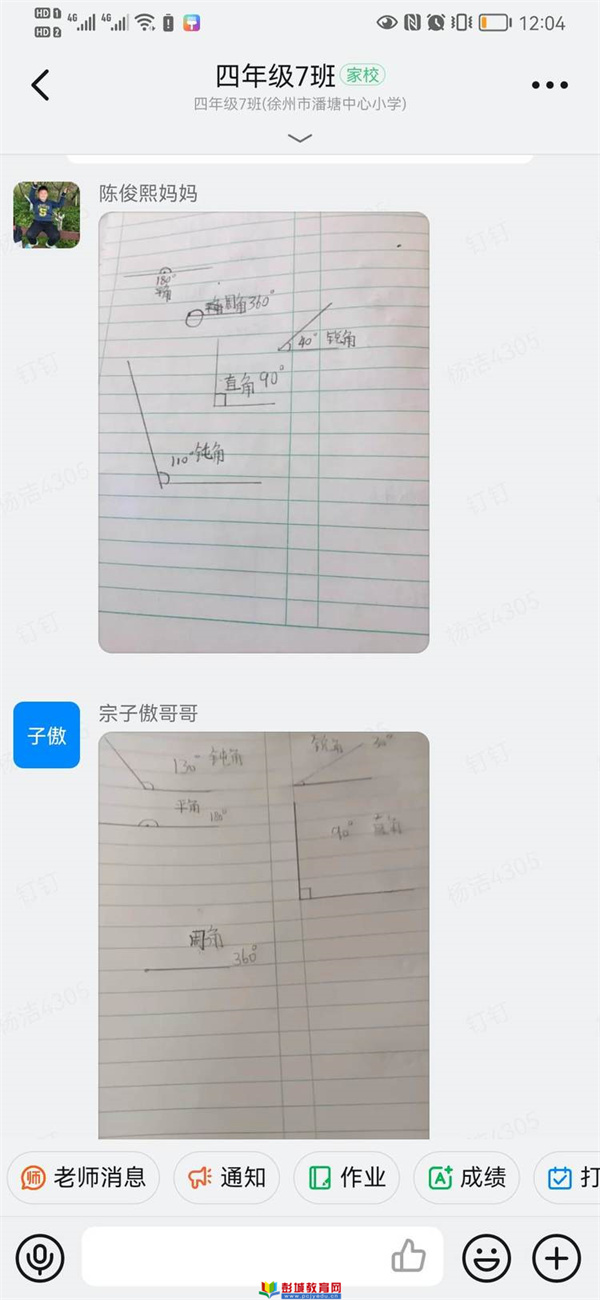 HD 1
HD 2
4G
4G
12:04
四年级7班
家校
四年级7班(徐州市潘塘中心小学)
陈俊熙妈妈
180°
平角
周角360°
40° 锐角
直角 90°
110° 钝角
子傲
宗子傲哥哥
130° 钝角
锐角 30°
平角
180°
90° 直角
周角
360°
钉钉
杨洁4305
师 老师消息
通知
作业
成绩
打
彭城教育网
www.pcjyedu.cn